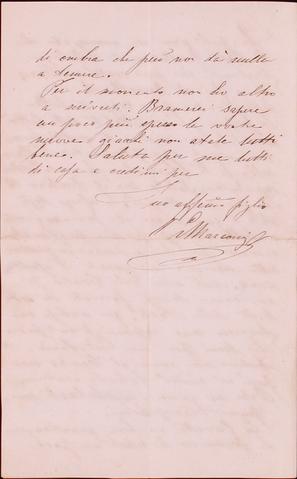 di ombra che però non dà nulla
a temere.
Per il momento non ho altro
a scriverti. Bramerei sapere
un poco più spesso le vostre
nuove quando non state tutti
bene. Saluta per me tutti
di casa e credimi per
Tuo affemo figlio
G Marconi